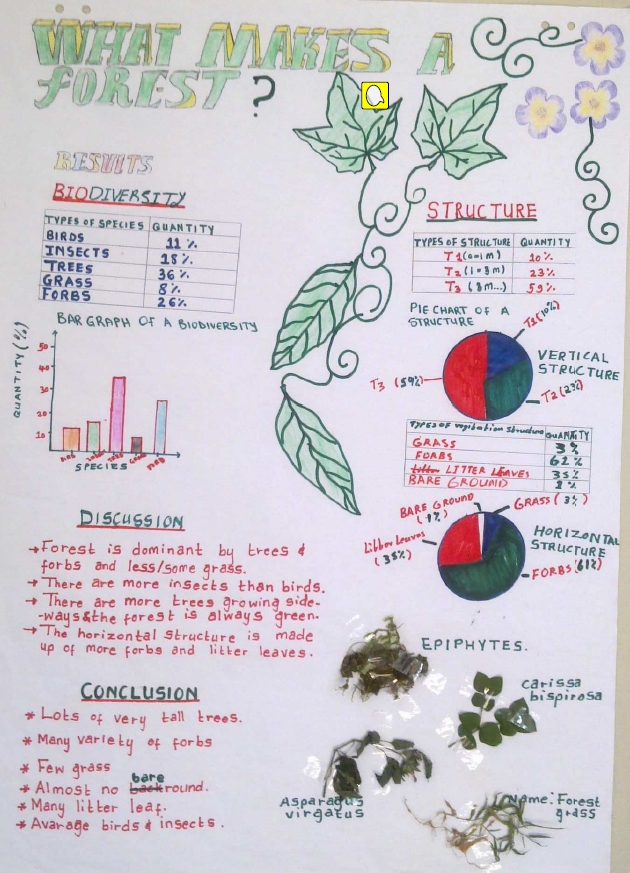 WHAT MAKES A
FOREST ?
RESULTS
BIODIVERSITY
TYPES OF SPECIES QUANTITY
BIRDS 11 %
INSECTS 18%
TREES 36 %
GRASS 8%
FORBS 26%
BAR GRAPH OF A BIODIVERSITY
QUANTITY (%)
50
40
30
20
10
BIRD
TREE
GRASS
FORB
SPECIES
DISCUSSION
→ Forest is dominant by trees &
forbs and less/some grass.
→ There are more insects than birds.
→ There are more trees growing side-
-ways & the forest is always green.
→ The horizontal structure is made
up of more forbs and litter leaves.
CONCLUSION
* Lots of very tall trees.
* Many variety of forbs
* Few grass
bare
* Almost no back round.
* Many litter leaf.
* Avarage birds & insects.
STRUCTURE
TYPES OF STRUCTURE QUANTITY
T1 (0-1m) 10%
T2 (1-3m) 23%
T3 (3m...) 59%
PIE CHART OF A
STRUCTURE
T1 (10%)
VERTICAL
STRUCTURE
T3 (59%)
T2 (23%)
TYPES OF vegitation structure QUANTITY
GRASS 3%
FORBS 62%
Litter LITTER LEAVES 35%
BARE GROUND
BARE GROUND
(1%)
GRASS (3%)
Litter leaves
(35%)
HORIZONTAL
STRUCTURE
FORBS (61%)
EPIPHYTES.
Carissa
bispirosa
Asparagus
virgatus
Name: Forest
grass